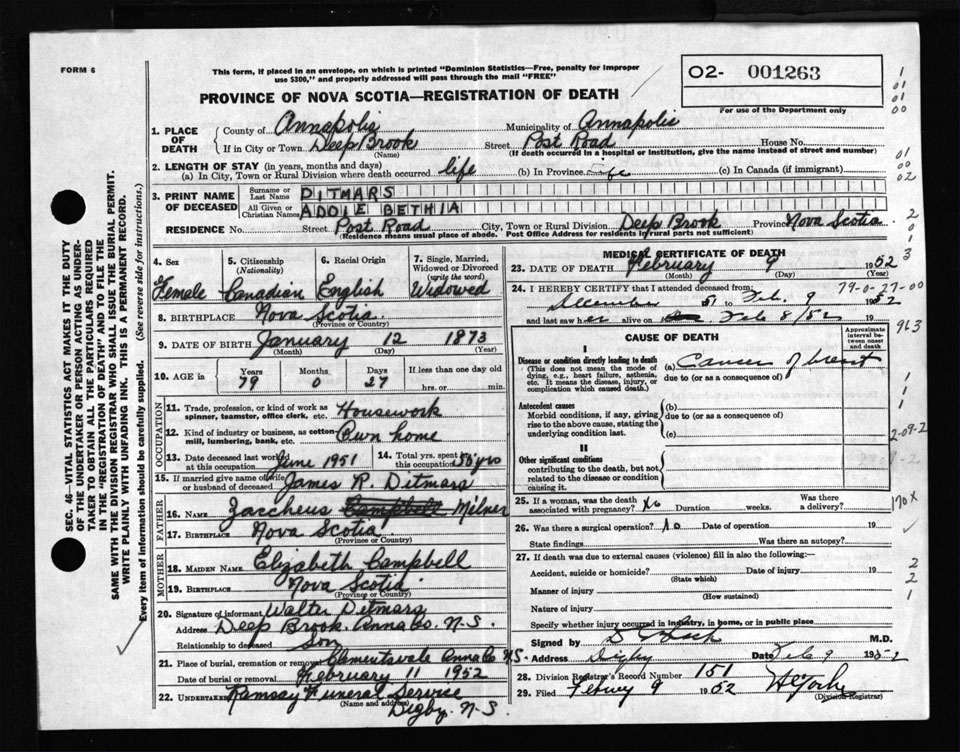 FORM 6
This form, if placed in an envelope, on which is printed "Dominion Statistics—Free, penalty for improper
use $300," and properly addressed will pass through the mail "FREE"
02- 001263
For use of the Department only
PROVINCE OF NOVA SCOTIA—REGISTRATION OF DEATH
1. PLACE OF DEATH County of Annapolis Municipality of Annapolis
If in City or Town Deep Brook Street Post Road House No.
(Name) (If death occurred in a hospital or institution, give the name instead of street and number)
2. LENGTH OF STAY (in years, months and days)
(a) In City, Town or Rural Division where death occurred life (b) In Province life (c) In Canada (if immigrant)
3. PRINT NAME OF DECEASED Surname or Last Name DITMARS
All Given or Christian Names ADDIE BETHIA
RESIDENCE No. Street Post Road City, Town or Rural Division Deep Brook Province Nova Scotia
(Residence means usual place of abode. Post Office Address for residents in rural parts not sufficient)
SEC. 46—VITAL STATISTICS ACT MAKES IT THE DUTY
OF THE UNDERTAKER OR PERSON ACTING AS UNDER-
TAKER TO OBTAIN ALL THE PARTICULARS REQUIRED
IN THE "REGISTRATION OF DEATH" AND TO FILE THE
SAME WITH THE DIVISION REGISTRAR WHO SHALL ISSUE THE BURIAL PERMIT.
WRITE PLAINLY WITH UNFADING INK. THIS IS A PERMANENT RECORD.
Every item of information should be carefully supplied. (See reverse side for instructions.)
4. Sex Female
5. Citizenship (Nationality) Canadian
6. Racial Origin English
7. Single, Married, Widowed or Divorced (write the word) Widowed
8. BIRTHPLACE Nova Scotia
(Province or Country)
9. DATE OF BIRTH January 12 1873
(Month) (Day) (Year)
10. AGE in Years 79 Months 0 Days 27 If less than one day old hrs. or min.
OCCUPATION
11. Trade, profession, or kind of work as spinner, teamster, office clerk, etc. Housework
12. Kind of industry or business, as cotton-mill, lumbering, bank, etc. Own home
13. Date deceased last worked at this occupation June 1951 14. Total yrs. spent in this occupation 56 yrs
15. If married give name of wife or husband of deceased James R. Ditmars
FATHER
16. NAME Zaccheus Campbell Milner
17. BIRTHPLACE Nova Scotia
(Province or Country)
MOTHER
18. MAIDEN NAME Elizabeth Campbell
19. BIRTHPLACE Nova Scotia
(Province or Country)
20. Signature of informant Walter Ditmars
Address Deep Brook. Anna Co. N-S.
Relationship to deceased Son
21. Place of burial, cremation or removal Clementsvale Anna Co N-S-
Date of burial or removal February 11 1952
22. Undertaker Ramsay Funeral Service
(Name and address) Digby. N-S.
MEDICAL CERTIFICATE OF DEATH
23. DATE OF DEATH February 9 1952
(Month) (Day) (Year)
79-0-27-00
24. I HEREBY CERTIFY that I attended deceased from:
December 51 to Feb. 9 1952
and last saw her alive on Feb 8/52 19
CAUSE OF DEATH
Approximate interval between onset and death
I
Disease or condition directly leading to death
(This does not mean the mode of dying, e.g., heart failure, asthenia, etc. It means the disease, injury, or complication which caused death.)
(a) Cancer of breast
due to (or as a consequence of)
Antecedent causes
Morbid conditions, if any, giving rise to the above cause, stating the underlying condition last.
(b)
due to (or as a consequence of)
(c)
II
Other significant conditions
contributing to the death, but not related to the disease or condition causing it.
25. If a woman, was the death associated with pregnancy? No Duration weeks. Was there a delivery?
26. Was there a surgical operation? No Date of operation 19
State findings Was there an autopsy?
27. If death was due to external causes (violence) fill in also the following:—
Accident, suicide or homicide? Date of injury 19
(State which)
Manner of injury
(How sustained)
Nature of injury
Specify whether injury occurred in industry, in home, or in public place
Signed by M.D.
Address Digby Date Feb 9 1952
28. Division Registrar's Record Number 151
29. Filed 9 1952
(Division Registrar)
963
2-09-2
170 X